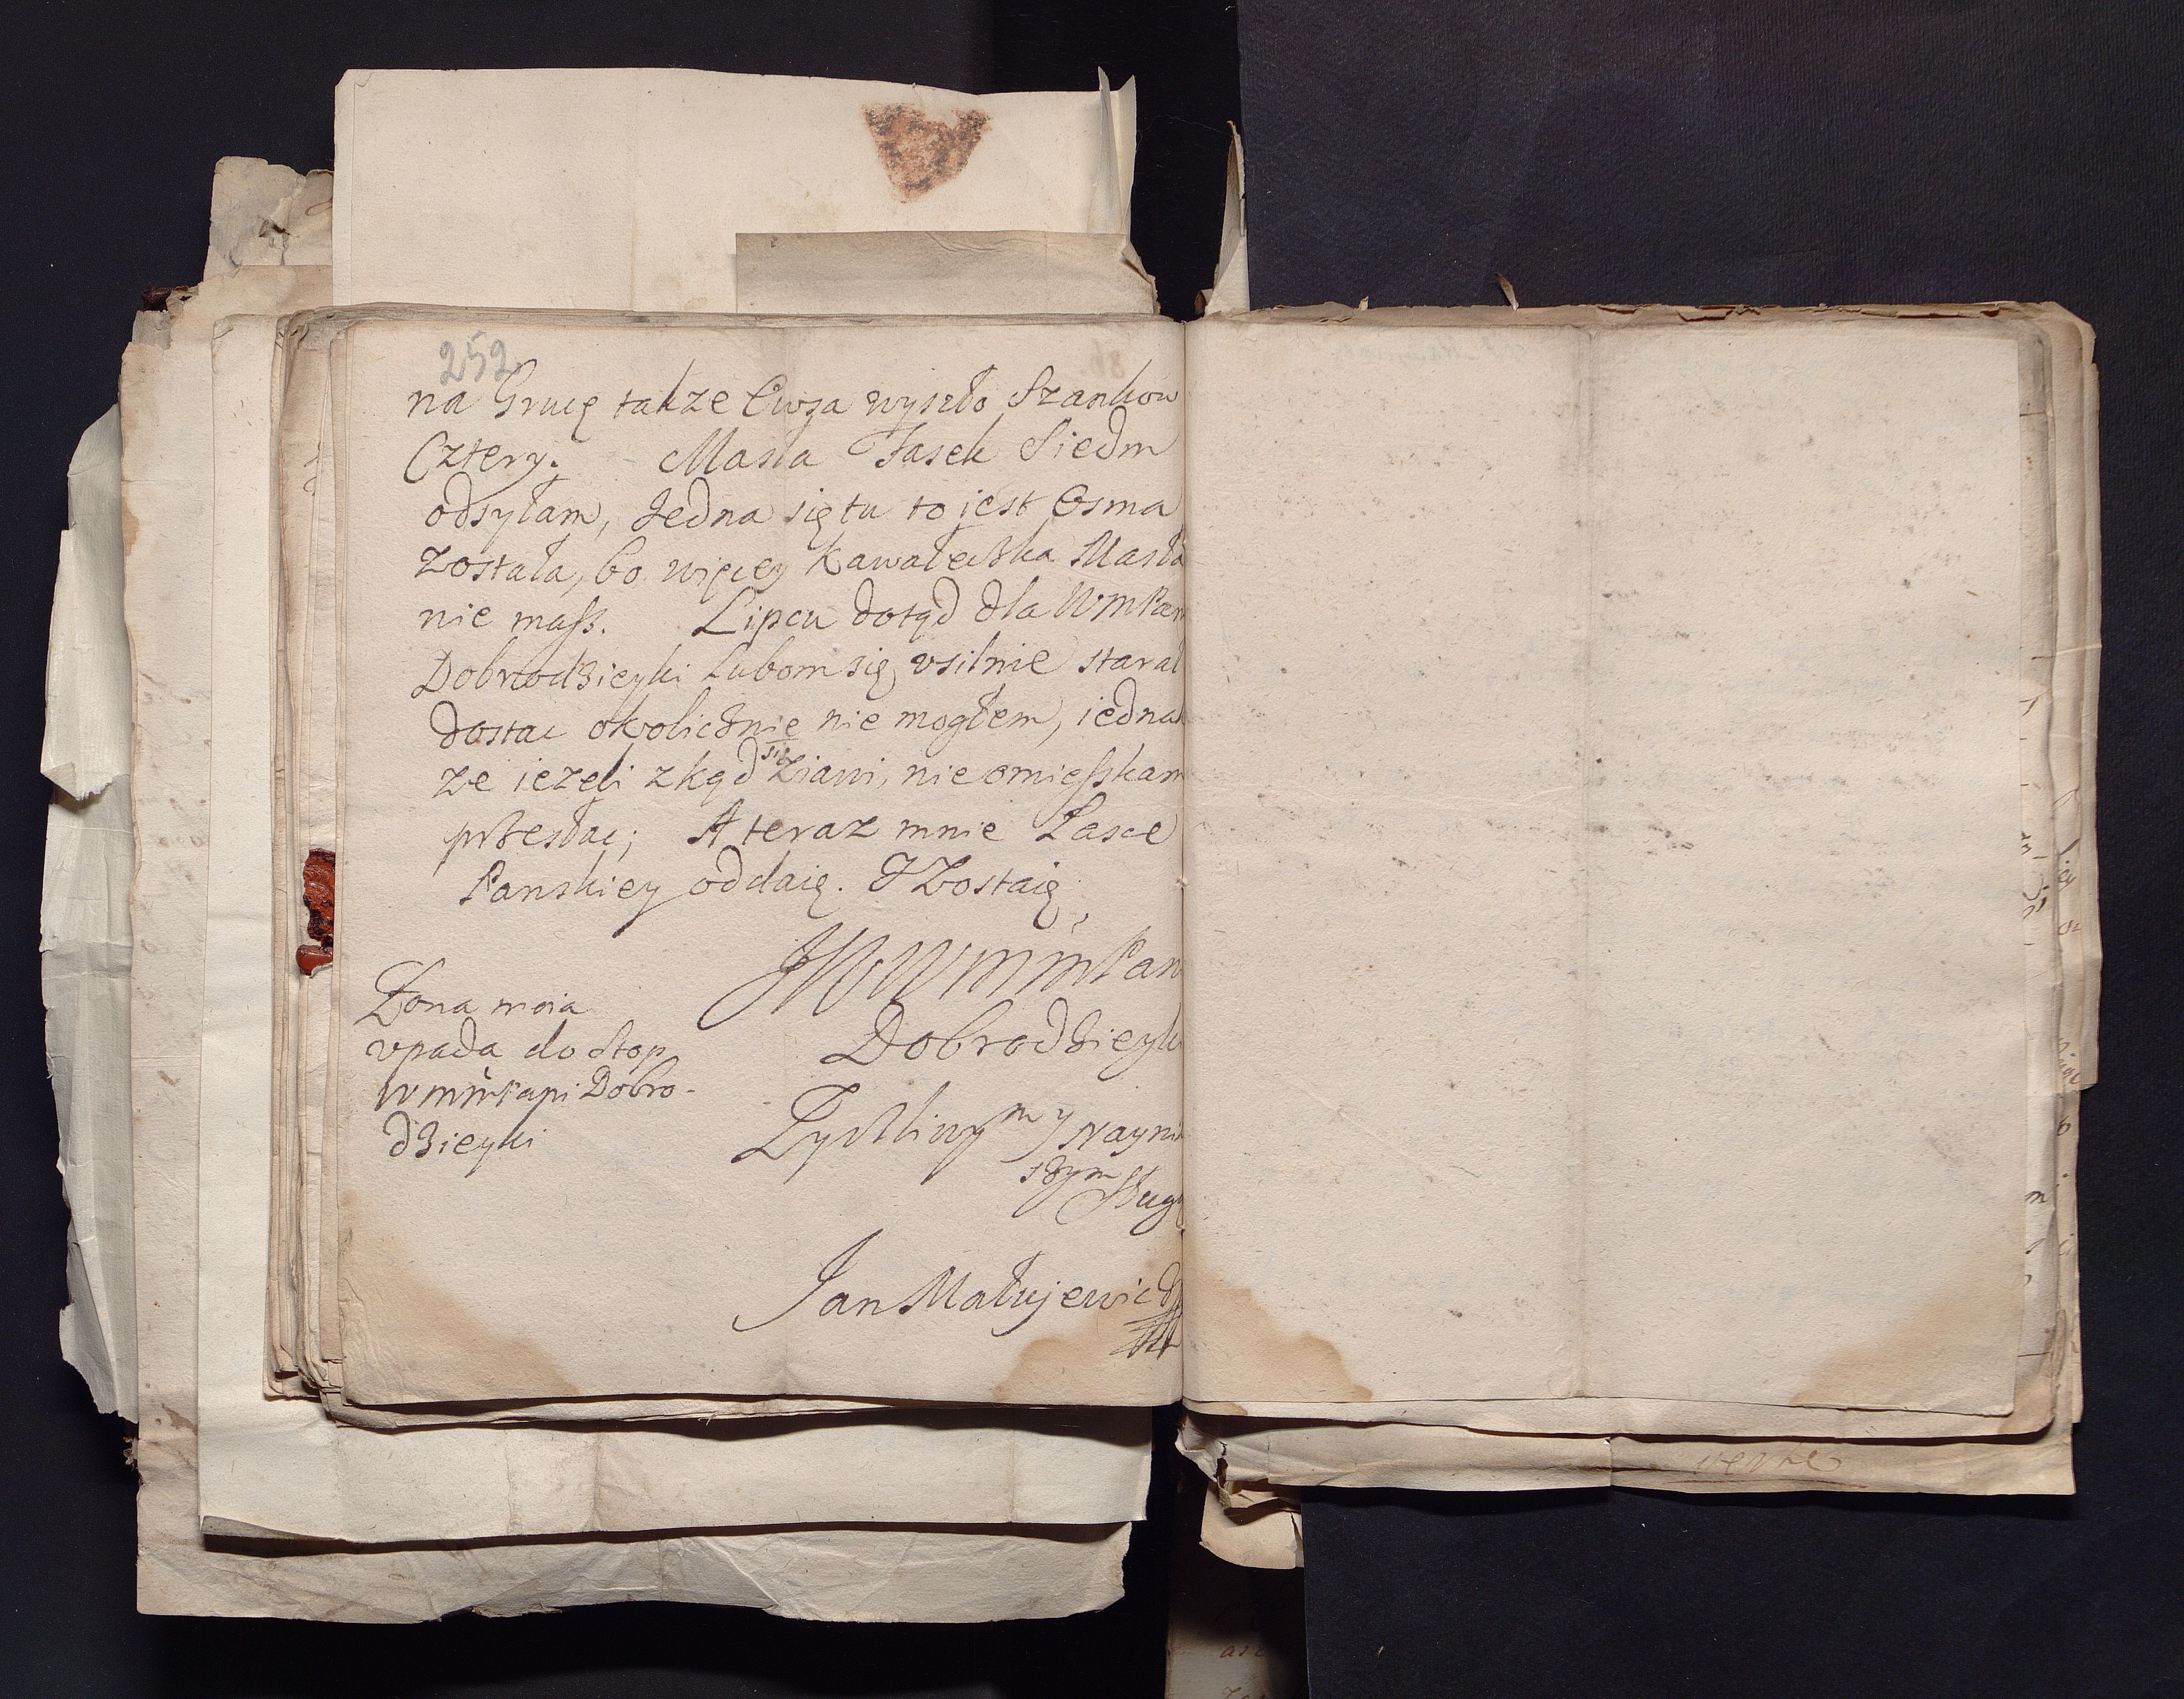 252
na Grucę także Owsa wyszło Szankow
Cztery. Masła Fasek Siedm
odsyłam, Jedna się tu to jest Osma
Została, bo więcey kawałeczka Masła
nie mass. Lipcu dotąd dla WMPan
Dobrodzieyki Lubom się vsilnie staral
dostac okolicznie nie mogłem, iedna
ze iezeli zkąd się Ziawi, nie omięsskam
przesłac; A teraz mnie Łasce
Panskiey oddaię. I Zostaię,
JWWMMPan
Dobrodzieyk
Zyczliwym y Nayni
szym
Sług
Żona moia
vpada do Stop
WMMPani Dobro-
dzieyki
Jan Małujewicz